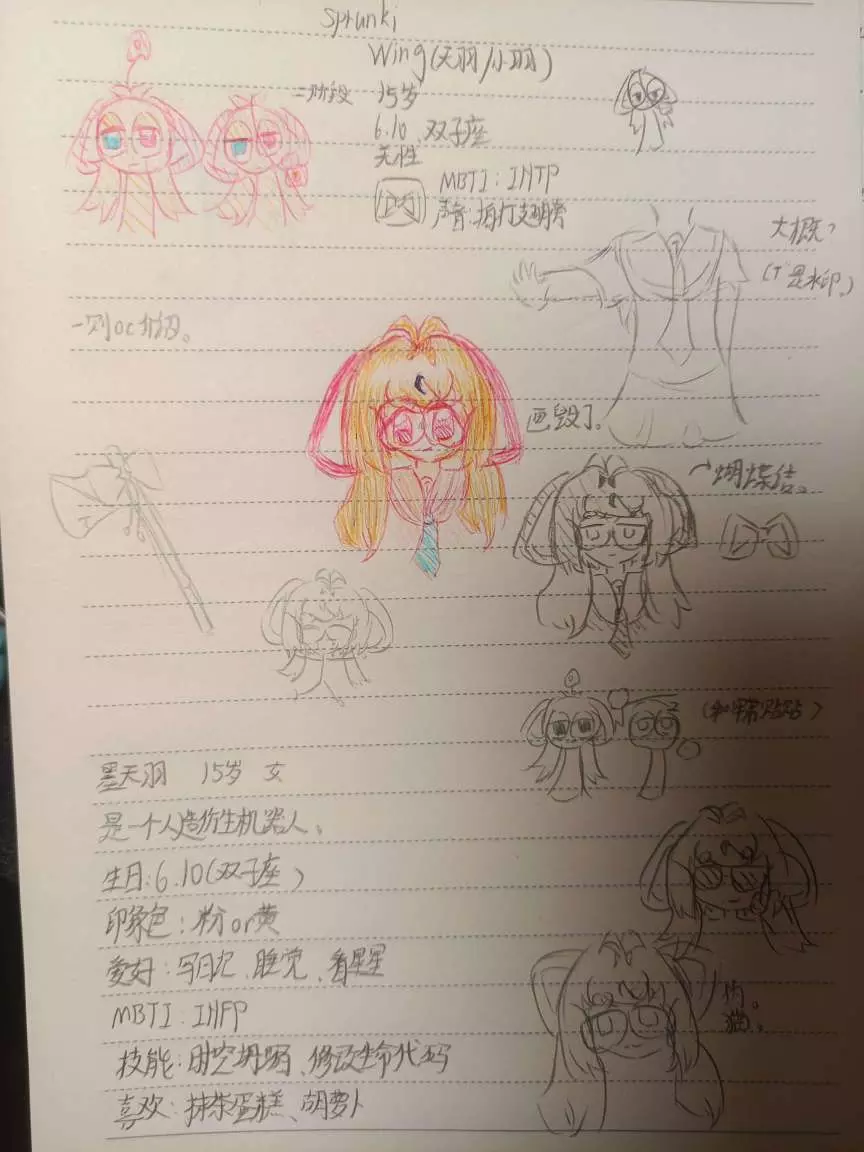 Sprunki
Wing(天羽/小羽)
二阶段 15岁
6.10 双子座
无性
MBTI: INTP
声音:拍打翅膀
大概?
(T是水印.)
一则oc介绍。
画毁了。
→蝴蝶结。
墨天羽 15岁 女
是一个人造仿生机器人。
生日:6.10(双子座)
印象色:粉or黄
爱好:写日记、睡觉、看星星
MBTI:INFP
猫。
技能:时空、修改生命代码
喜欢:抹茶蛋糕、胡萝卜